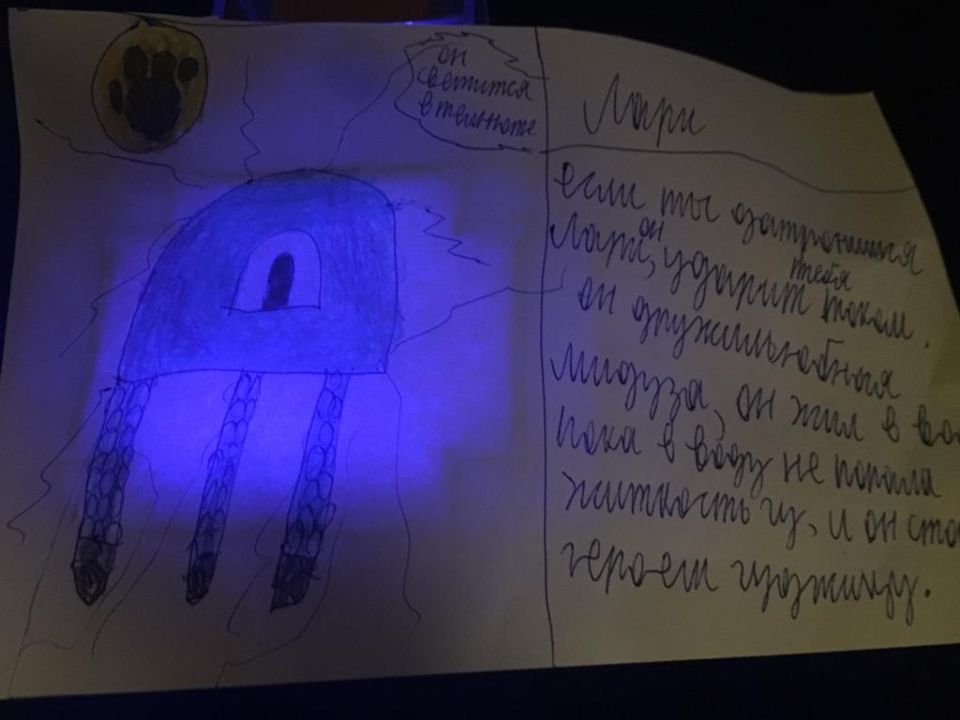 он
светится
в темноте
Лари
если ты дотронишся
Лари, он ударит тебя током.
он дружилюбная
мидуза, он жил в во
пока в воду не попала
житкость гу, и он ста
героем гуджитцу.